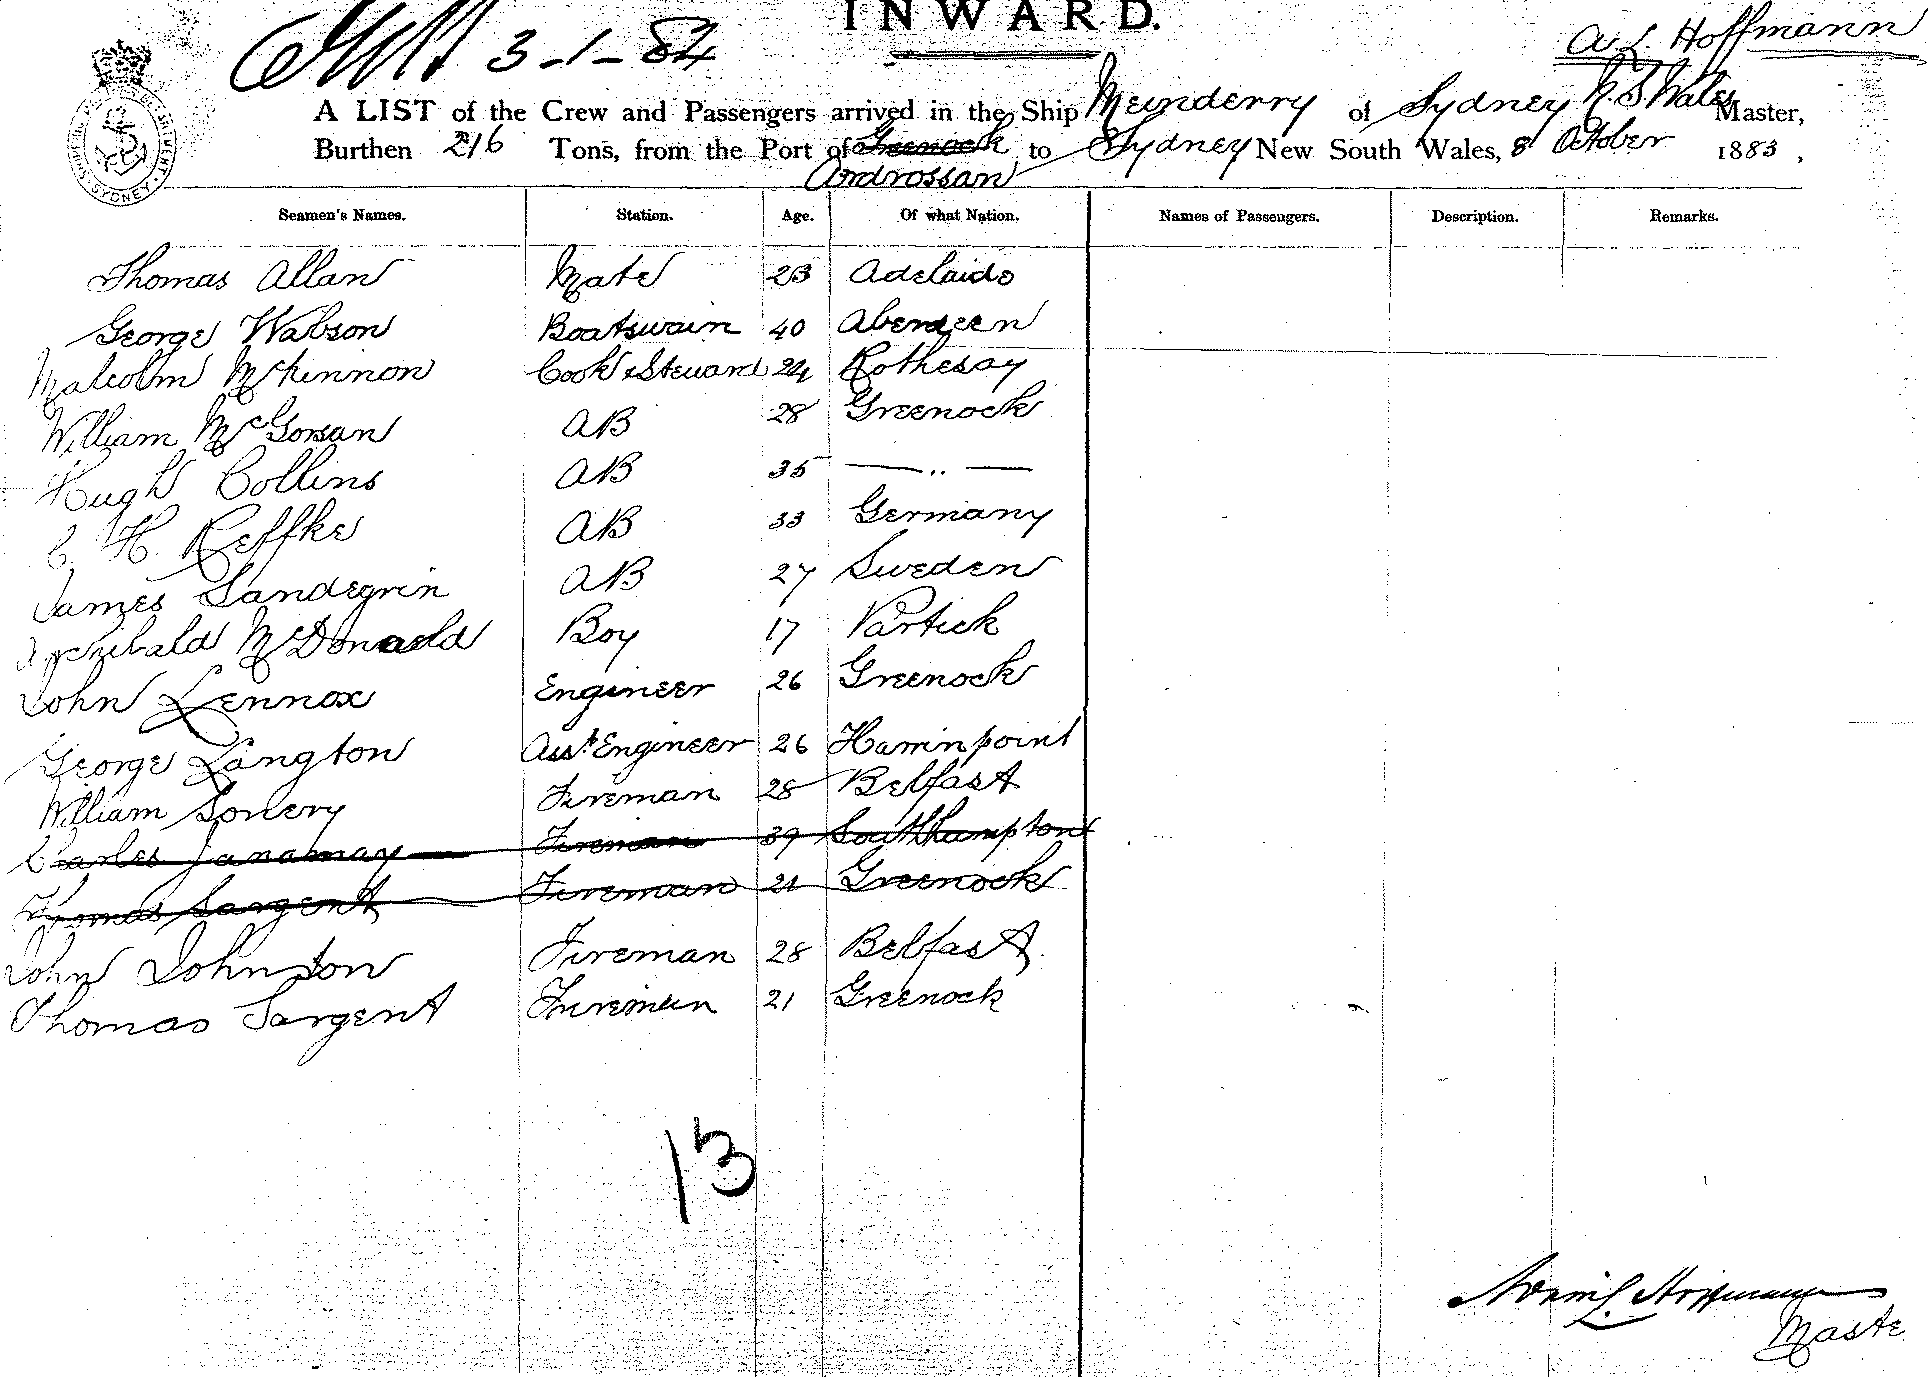 INWARD.
3-1-84
A. L. Hoffmann
A LIST of the Crew and Passengers arrived in the Ship Meinderry of Sydney N.S Wales Master,
Burthen 216 Tons, from the Port of Greenock to Sydney New South Wales, 8 October 1883,
Ardrossan
SHIPPING SYDNEY
Seamen's Names. Station. Age. Of what Nation. Names of Passengers. Description. Remarks.
Thomas Allan Mate 23 Adelaide
George Watson Boatswain 40 Aberdeen
Malcolm McKinnon Cook & Steward 24 Rothesay
William McGorsan AB 28 Greenock
Hugh Collins AB 35 — .. —
C. H. Reffke AB 33 Germany
James Sandegrin AB 27 Sweden
Archibald McDonald Boy 17 Partick
John Lennox Engineer 26 Greenock
George Langton Asst Engineer 26 point
William Sonery Fireman 28 Belfast
Charles Janaway Fireman 39 Southhampton
Thomas Sargent Fireman 21 Greenock
John Johnston Fireman 28 Belfast
Thomas Sargent Fireman 21 Greenock
13
L. Hoffmann
Maste